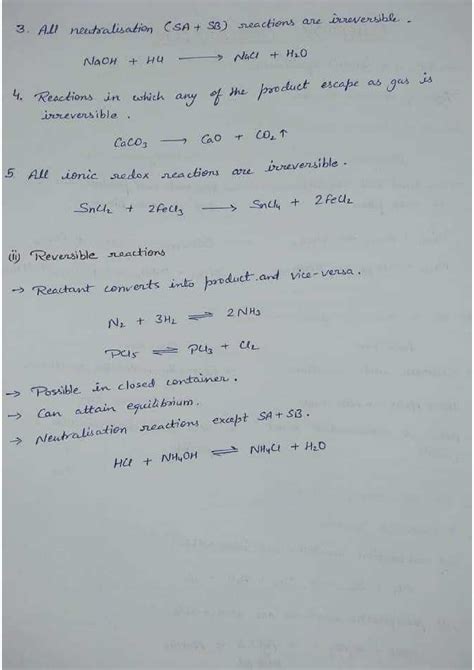 3. All neutralisation (SA + SB) reactions are irreversible.
NaOH + HCl ⟶ NaCl + H2O
4. Reactions in which any of the product escape as gas is
irreversible.
CaCO3 ⟶ CaO + CO2↑
5 All ionic redox reactions are irreversible.
SnCl2 + 2FeCl3 ⟶ SnCl4 + 2FeCl2
(ii) Reversible reactions
→ Reactant converts into product and vice-versa.
N2 + 3H2 ⇌ 2NH3
PCl5 ⇌ PCl3 + Cl2
→ Possible in closed container.
→ Can attain equilibrium.
→ Neutralisation reactions except SA + SB.
HCl + NH4OH ⇌ NH4Cl + H2O